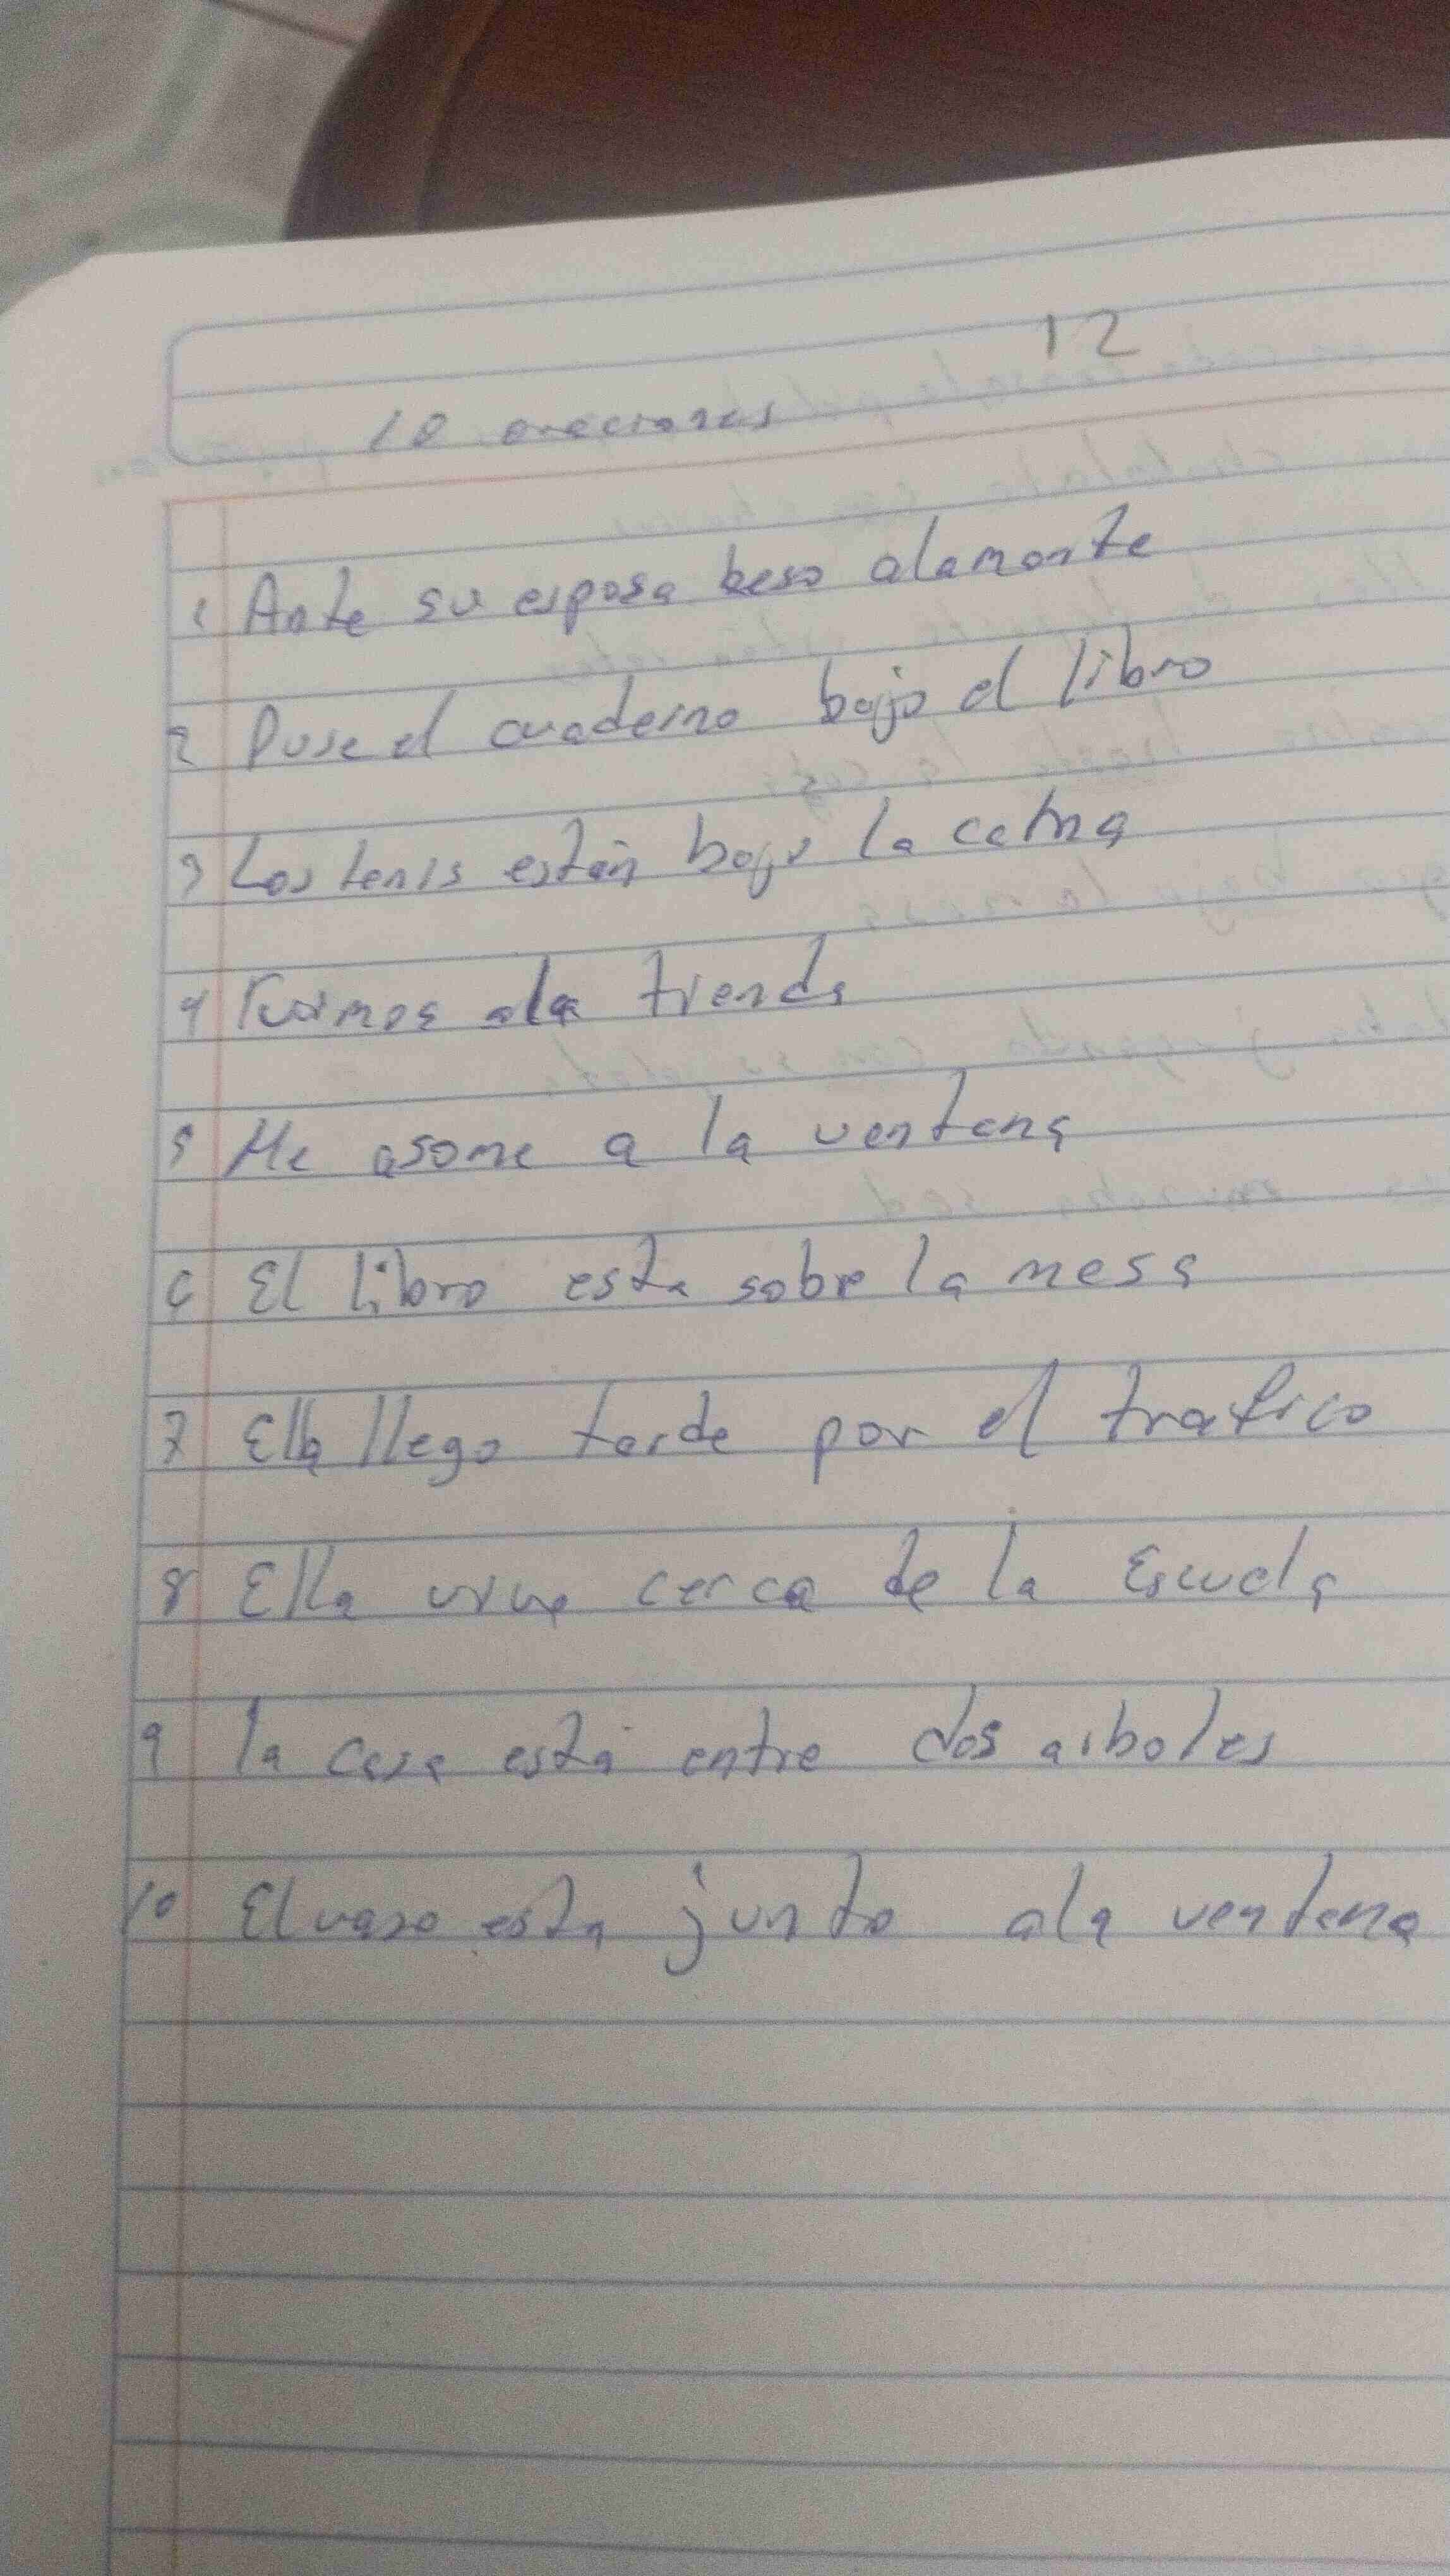 12
10 oraciones
1 Ante su esposa beso alamante
2 Puse el cuaderno bajo el libro
3 Los tenis están bajo la cama
4 Fuimos ala tienda
5 Me asome a la ventana
6 El libro esta sobre la mesa
7 Ella llego tarde por el trafico
8 Ella vive cerca de la Escuela
9 la casa está entre dos arboles
10 El vaso esta junto ala ventana